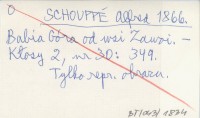 SCHOUPPÉ Alfred 1866.
Babia Góra od wsi Zawoi. –
Kłosy 2, nr 30: 349.
Tylko repr. obrazu.
1874